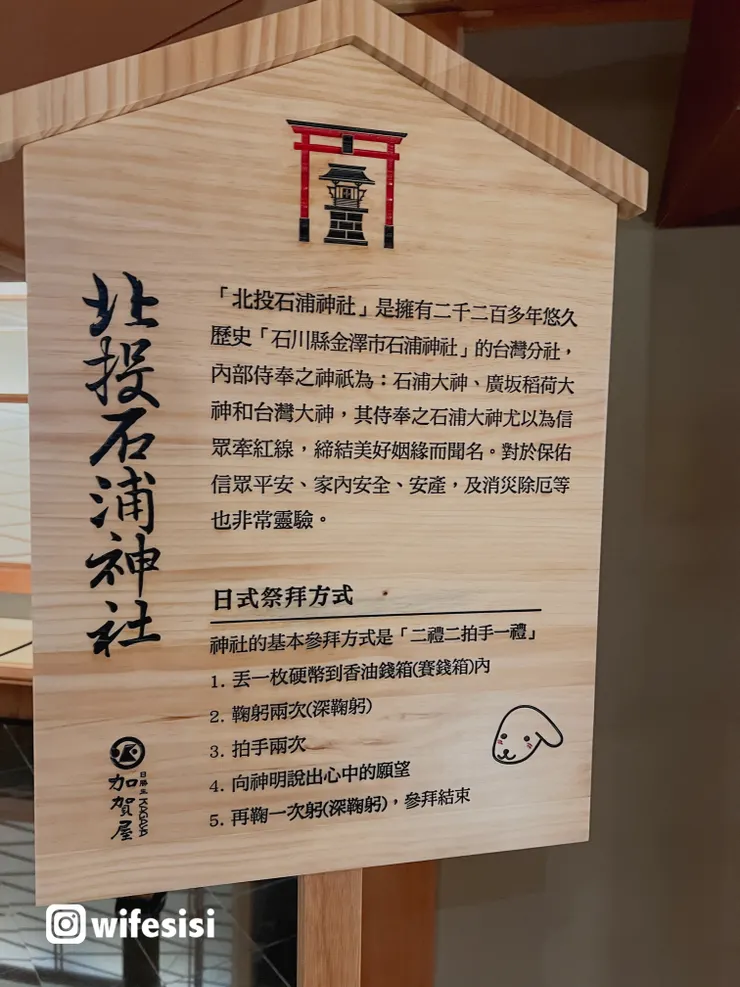 北投石浦神社
「北投石浦神社」是擁有二千二百多年悠久
歷史「石川縣金澤市石浦神社」的台灣分社，
內部侍奉之神祇為：石浦大神、廣坂稻荷大
神和台灣大神，其侍奉之石浦大神尤以為信
眾牽紅線，締結美好姻緣而聞名。對於保佑
信眾平安、家內安全、安產，及消災除厄等
也非常靈驗。
日式祭拜方式
神社的基本參拜方式是「二禮二拍手一禮」
1. 丟一枚硬幣到香油錢箱(賽錢箱)內
2. 鞠躬兩次(深鞠躬)
3. 拍手兩次
4. 向神明說出心中的願望
5. 再鞠一次躬(深鞠躬)，參拜結束
加賀屋
日勝生 KAGAYA
wifesisi